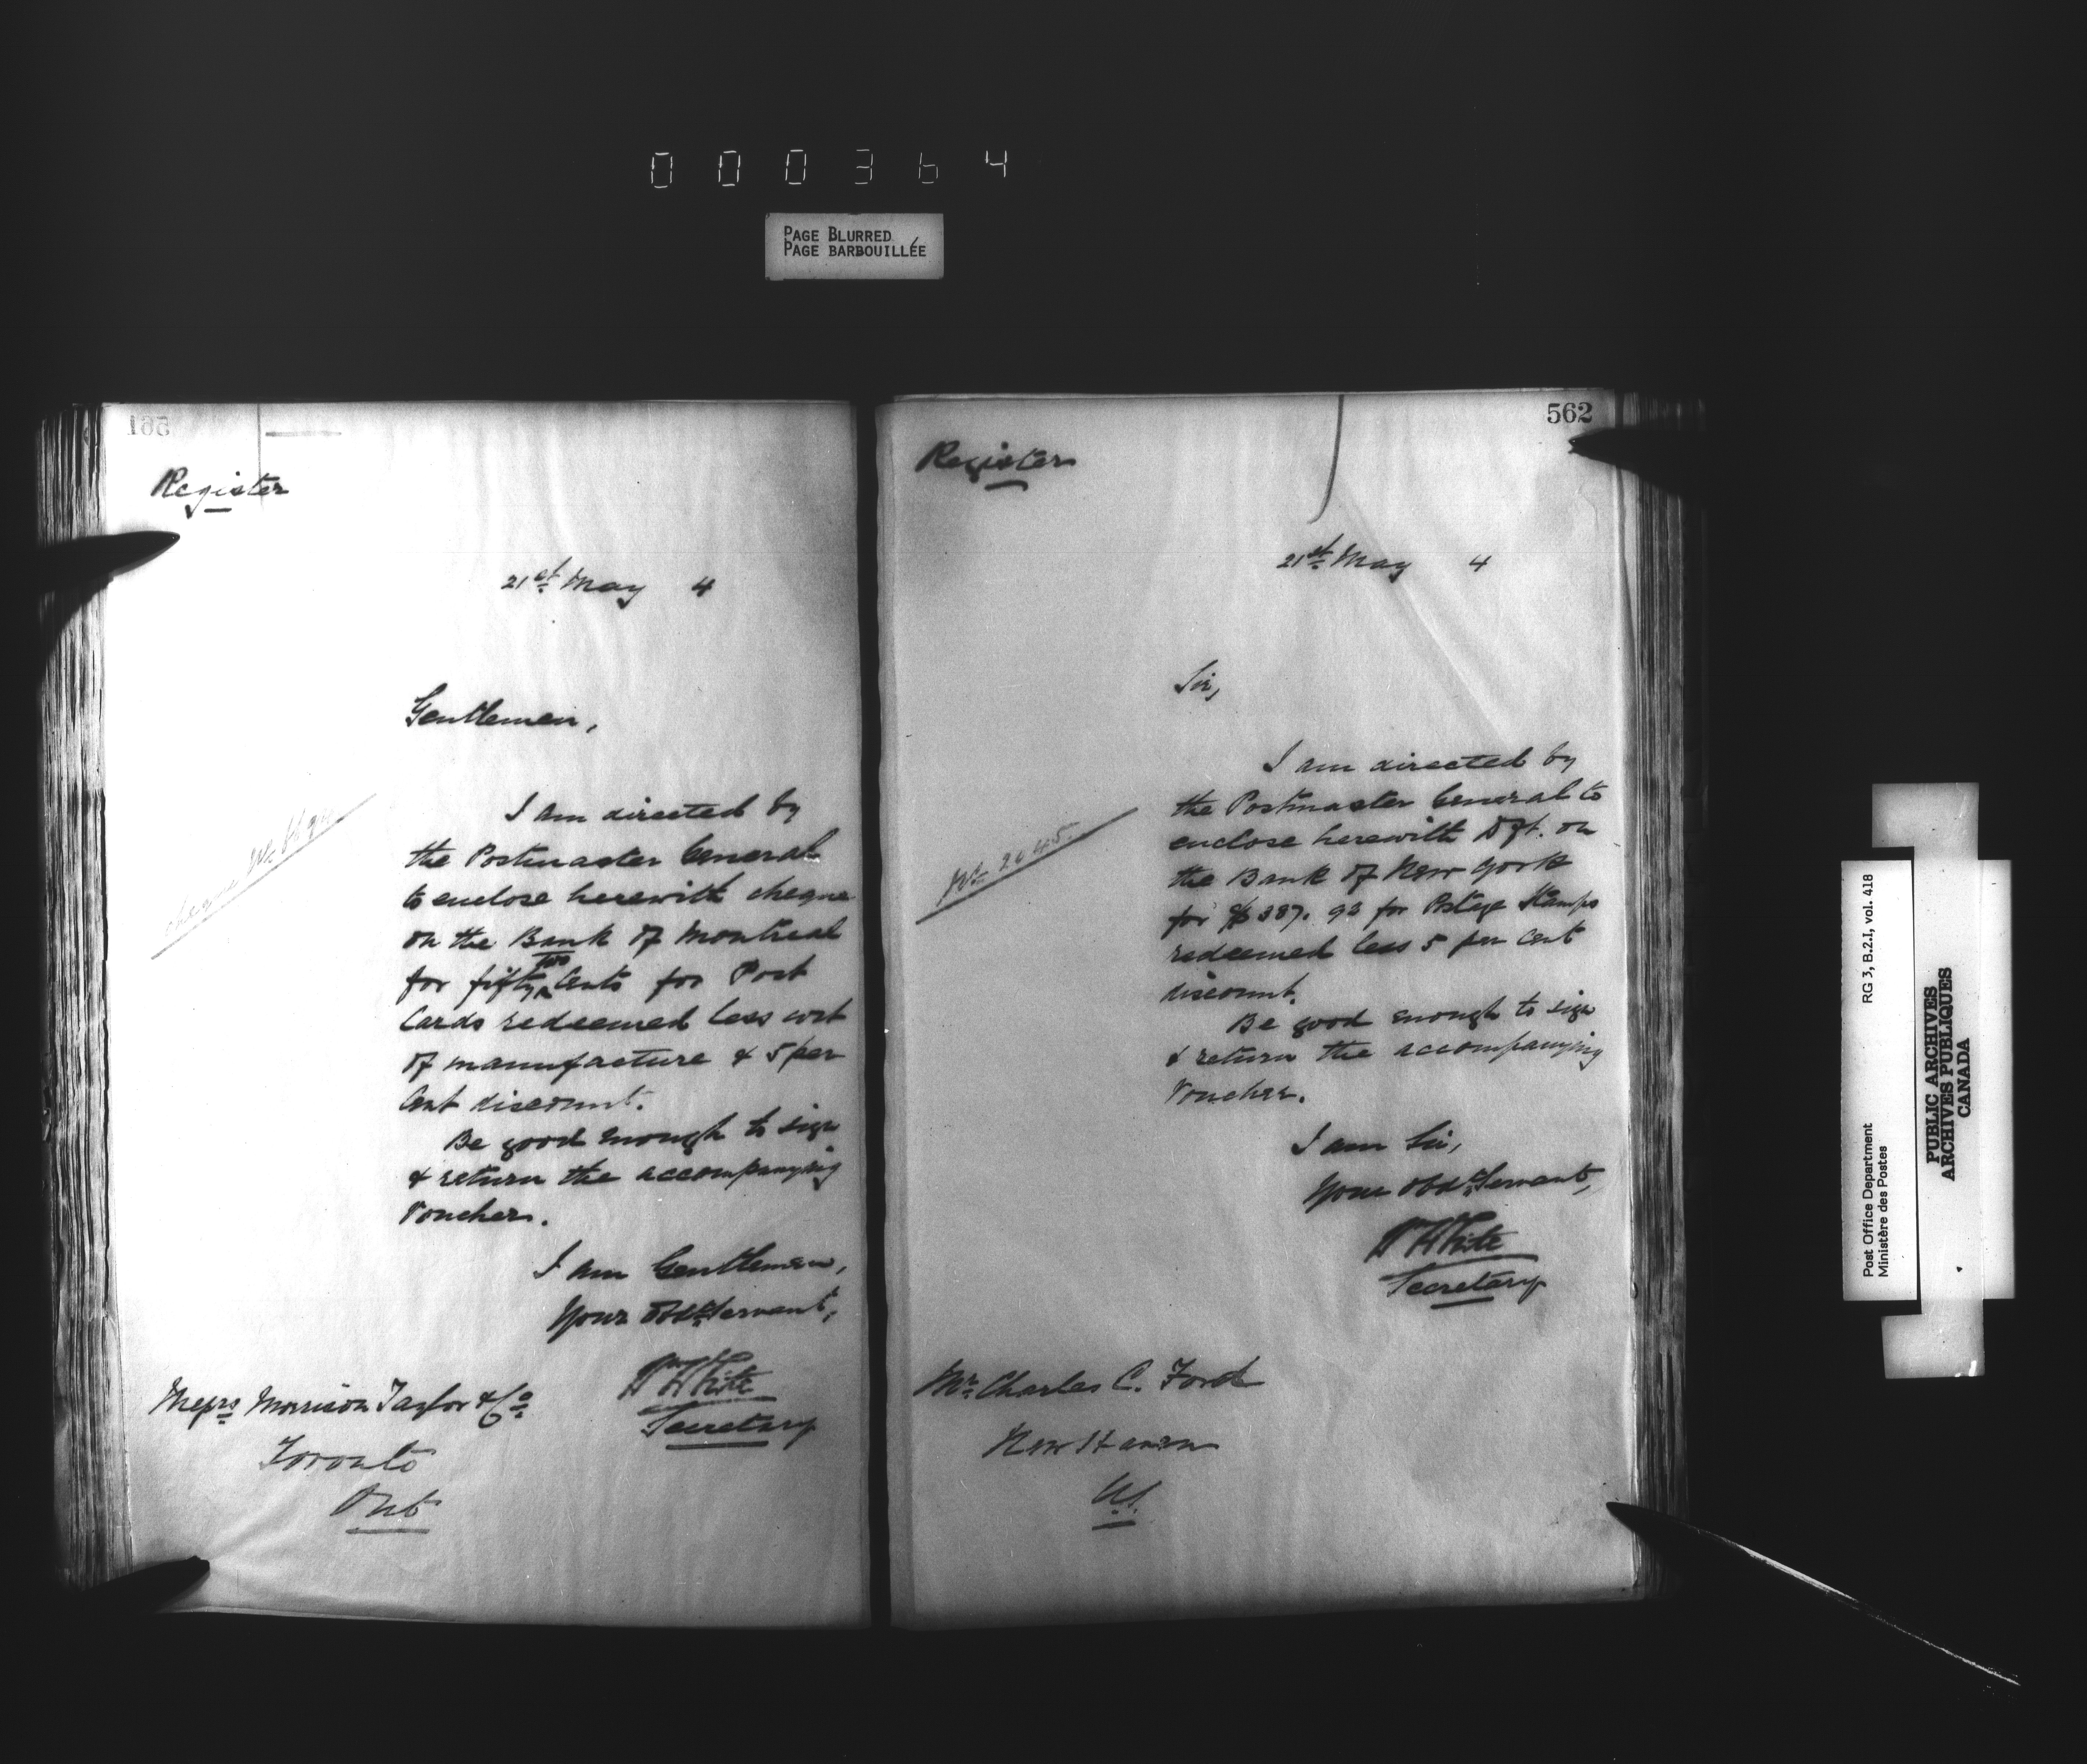 000364
PAGE BLURRED
PAGE BARBOUILLÉE
561
Register
21st May 4
Gentlemen,
I am directed by
the Postmaster General
to enclose herewith cheque
on the Bank of Montreal
for fifty two Cents for Post
Cards redeemed less cost
of manufacture & 5 per
Cent discount.
Be good enough to sign
& return the accompanying
Vouchers.
I am Gentlemen,
Your obdt Servant,
Wm White
Secretary
Messrs Morrison Taylor & Co
Toronto
Ont
562
Register
21st May 4
Sir,
No 2045
I am directed by
the Postmaster General to
enclose herewith Dft. on
the Bank of New York
for $387.93 for Postage Stamps
redeemed less 5 per cent
discount.
Be good enough to sign
& return the accompanying
Voucher.
I am Sir,
Your obdt Servant,
Wm White
Secretary
Mr Charles C. Ford
New Haven
US.
Post Office Department
Ministère des Postes
RG 3, B.2.I, vol. 418
PUBLIC ARCHIVES
ARCHIVES PUBLIQUES
CANADA